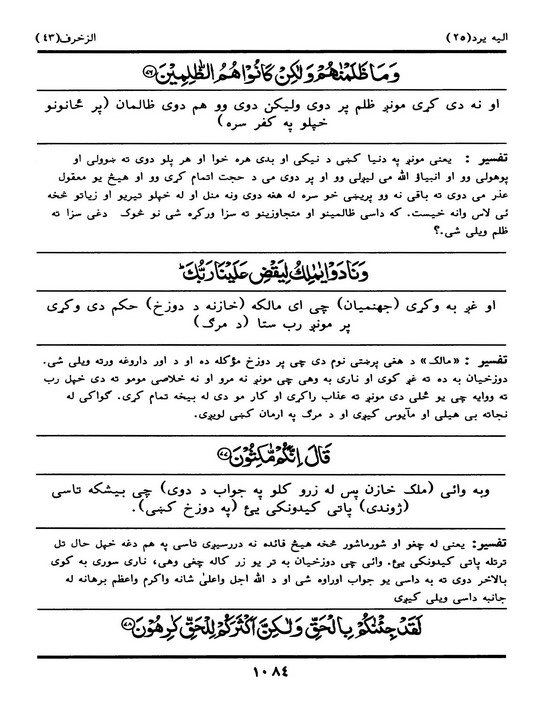 الیه یرد(۲۵) الزخرف(۴۳)
وَمَا ظَلَمْنٰهُمْ وَلٰكِنْ كَانُوْا هُمُ الظّٰلِمِيْنَ ﴿۷۶﴾
او نه دی کړی مونږ ظلم پر دوی ولیکن دوی وو هم دوی ظالمان (پر ځانونو
خپلو په کفر سره)
تفسیر : یعنی مونږ په دنیا کښی د نیکی او بدی هره خوا او هر پلو دوی ته ښوولی او
پوهولی وو او انبیاؤ الله می لیږلی وو او پر دوی می د حجت اتمام کړی وو او هیڅ یو معقول
عذر می دوی ته باقی نه وو پریښی خو سره له هغه دوی ونه منل او له خپلو تیریو او زیاتو څخه
ئی لاس وانه خیست. که داسی ظالمینو او متجاوزینو ته سزا ورکړه شی نو څوک دغی سزا ته
ظلم ویلی شی.؟
وَنَادَوْا يٰمٰلِكُ لِيَقْضِ عَلَيْنَا رَبُّكَ ؕ
او غږ به وکړی (جهنمیان) چی ای مالکه (خازنه د دوزخ) حکم دی وکړی
پر مونږ رب ستا (د مرګ)
تفسیر : «مالک» د هغی پرښتی نوم دی چی پر دوزخ مؤکله ده او د اور داروغه ورته ویلی شی.
دوزخیان به ده ته غږ کوی او ناری به وهی چی مونږ نه مرو او نه خلاصی مومو ته دی خپل رب
ته ووایه چی یو ځلی دی مونږ ته عذاب راکړی او کار مو دی له بیخه تمام کړی. ګواکی له
نجاته بی هیلی او مآیوس کیږی او د مرګ په ارمان کښی لویږی.
قَالَ اِنَّكُمْ مّٰكِثُوْنَ ﴿۷۷﴾
وبه وائی (ملک خازن پس له زرو کلو په جواب د دوی) چی بیشکه تاسی
(ژوندی) پاتی کیدونکی یئ (په دوزخ کښی).
تفسیر: یعنی له چغو او شورماشور څخه هیڅ فائده نه دررسیږی تاسی په هم دغه خپل حال تل
ترتله پاتی کیدونکی یئ. وائی چی دوزخیان به تر یو زر کاله چغی وهی، ناری سوری به کوی
بالاخر دوی ته به داسی یو جواب اوراوه شی او د الله اجل واعلیٰ شانه واکرم واعظم برهانه له
جانبه داسی ویلی کیږی
لَقَدْ جِئْنٰكُمْ بِالْحَقِّ وَلٰكِنَّ اَكْثَرَكُمْ لِلْحَقِّ كٰرِهُوْنَ ﴿۷۸﴾
۱۰۸٤